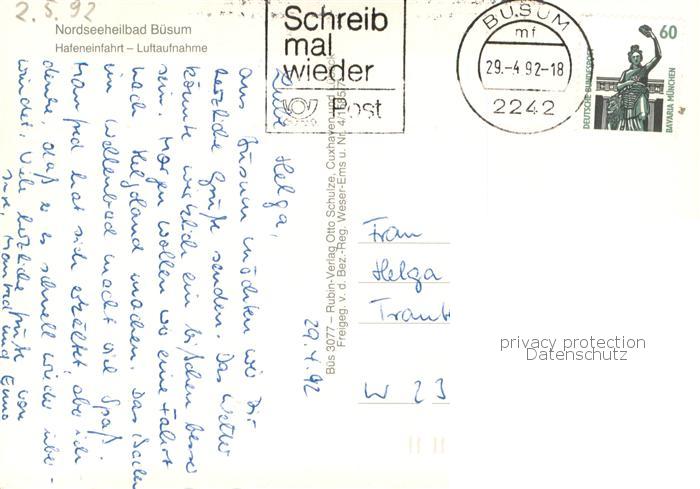 2.5.92
Nordseeheilbad Büsum
Hafeneinfahrt – Luftaufnahme
Schreib
mal
wieder
Post
BÜSUM
mf
29.-4.92-18
2242
60
DEUTSCHE BUNDESPOST
BAVARIA MÜNCHEN
29.4.92
Liebe Helga,
aus Büsum möchten wir Dir
herzliche Grüße senden. Das Wetter
könnte wirklich ein bißchen besser
sein. Morgen wollen wir eine Fahrt
nach Helgoland machen. Das Baden
im Wellenbad macht viel Spaß.
Manfred hat sich erkältet, aber ich
denke, daß er es schnell wieder über-
windet. Viele herzliche Grüße von
Manfred und
Büs 3077 – Rubin-Verlag Otto Schulze, Cuxhaven und
Freigeg. v. d. Bez.-Reg. Weser-Ems u. Nr.
Frau
Helga
Traut
W 23
privacy protection
Datenschutz